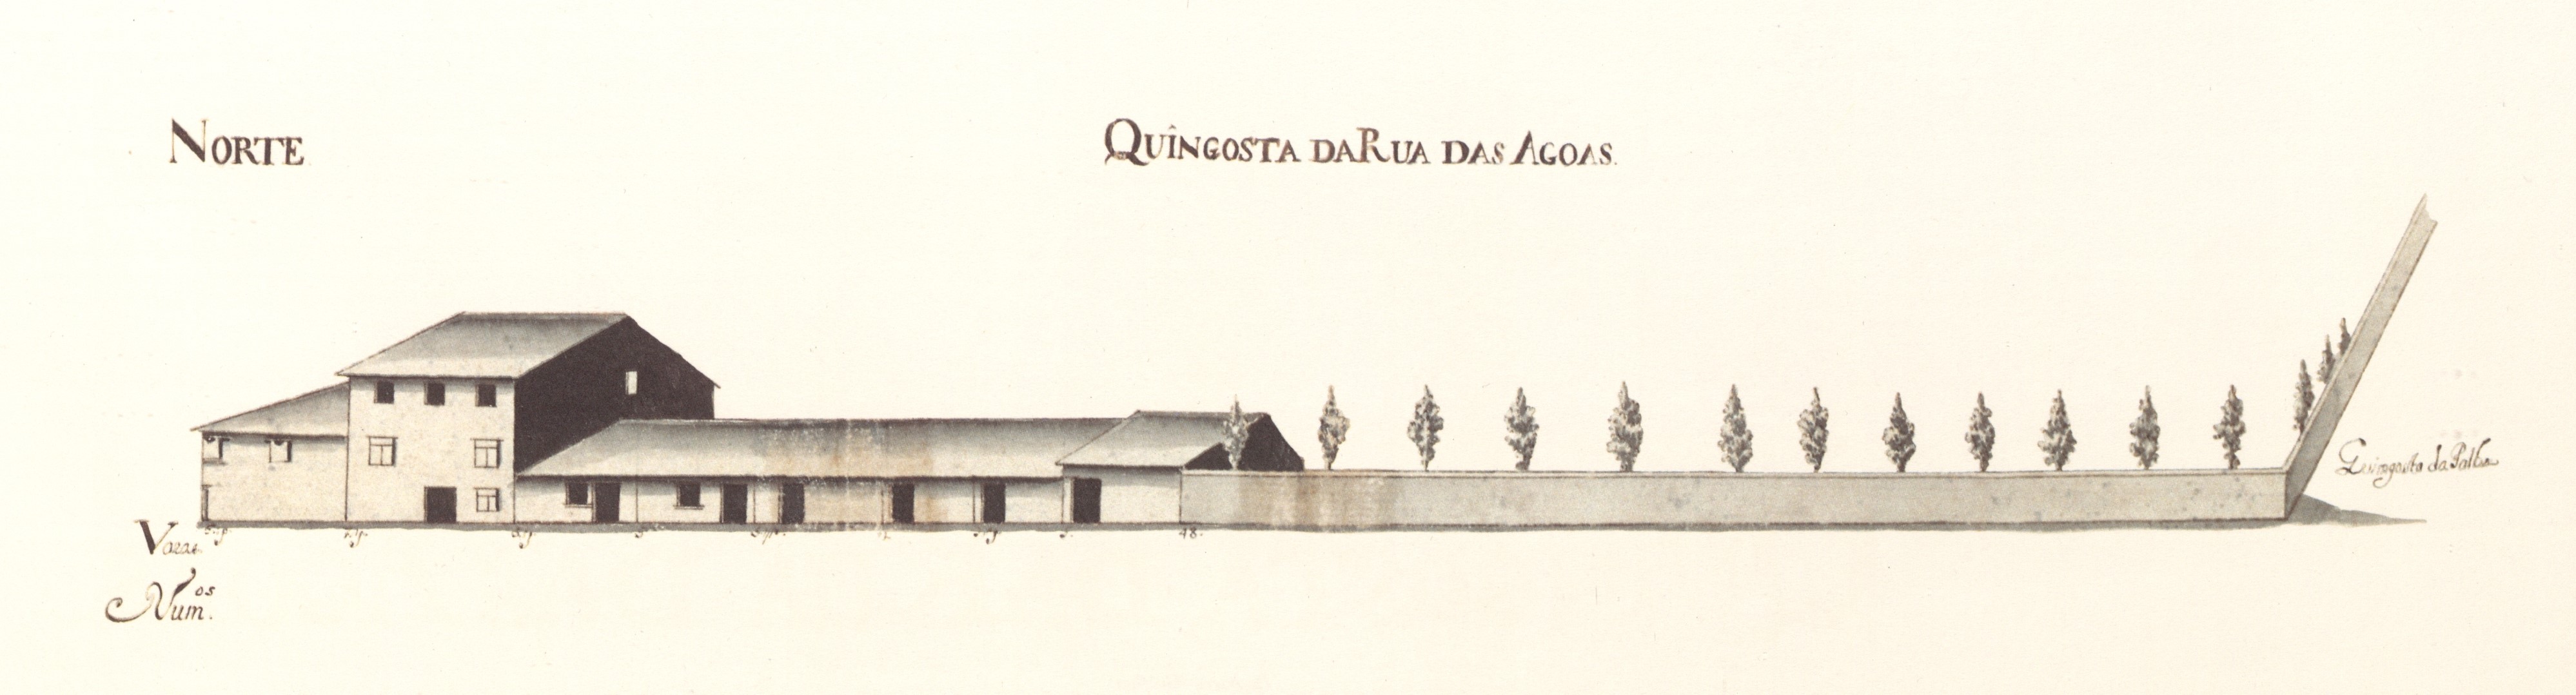 NORTE
QUÎNGOSTA DA RUA DAS AGOAS.
Quingosta da Palha
Varas
48.
Num.os